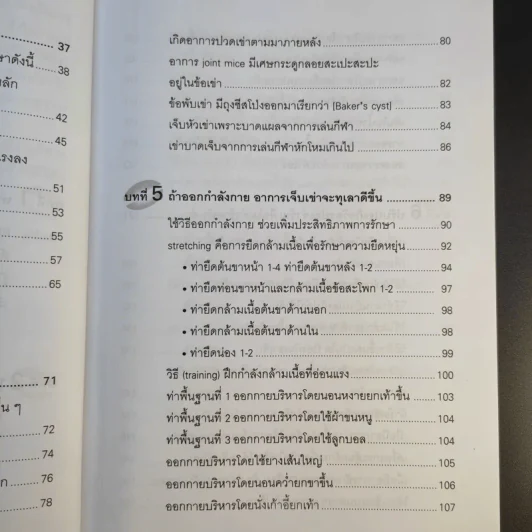 37
าดังนี้ 38
ลัก
42
45
รงลง
51
53
55
57
65
71
น ๆ
72
74
ก 76
78
เกิดอาการปวดเข่าตามมาภายหลัง 80
อาการ joint mice มีเศษกระดูกลอยสะเปะสะปะ
อยู่ในข้อเข่า 82
ข้อพับเข่า มีถุงซีสโปงออกมาเรียกว่า (Baker's cyst) 83
เจ็บหัวเข่าเพราะบาดแผลจากการเล่นกีฬา 84
เข่าบาดเจ็บจากการเล่นกีฬาหักโหมเกินไป 86
บทที่ 5 ถ้าออกกำลังกาย อาการเจ็บเข่าจะทุเลาดีขึ้น 89
ใช้วิธีออกกำลังกาย ช่วยเพิ่มประสิทธิภาพการรักษา 90
stretching คือการยืดกล้ามเนื้อเพื่อรักษาความยืดหยุ่น 92
• ท่ายืดต้นขาหน้า 1-4 ท่ายืดต้นขาหลัง 1-2 94
• ท่ายืดท่อนขาหน้าและกล้ามเนื้อข้อสะโพก 1-2 97
• ท่ายืดกล้ามเนื้อต้นขาด้านนอก 98
• ท่ายืดกล้ามเนื้อต้นขาด้านใน 98
• ท่ายืดน่อง 1-2 99
วิธี (training) ฝึกกำลังกล้ามเนื้อที่อ่อนแรง 100
ท่าพื้นฐานที่ 1 ออกกายบริหารโดยนอนหงายยกเท้าขึ้น 103
ท่าพื้นฐานที่ 2 ออกกายบริหารโดยใช้ผ้าขนหนู 104
ท่าพื้นฐานที่ 3 ออกกายบริหารโดยใช้ลูกบอล 104
ออกกายบริหารโดยใช้ยางเส้นใหญ่ 105
ออกกายบริหารโดยนอนคว่ำยกขาขึ้น 106
ออกกายบริหารโดยนั่งเก้าอี้ยกเท้า 107